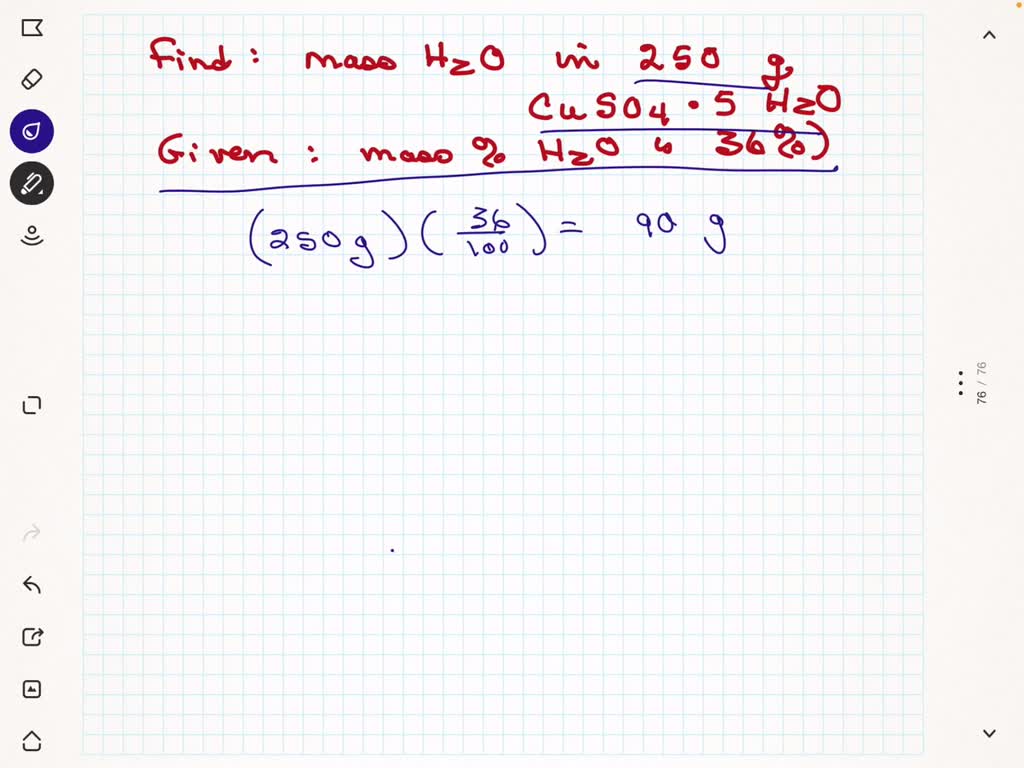 Find : mass H2O in 250 g
CuSO4 • 5 H2O
Given : mass % H2O is 36%)
(250g)(36/100) = 90 g
76 / 76